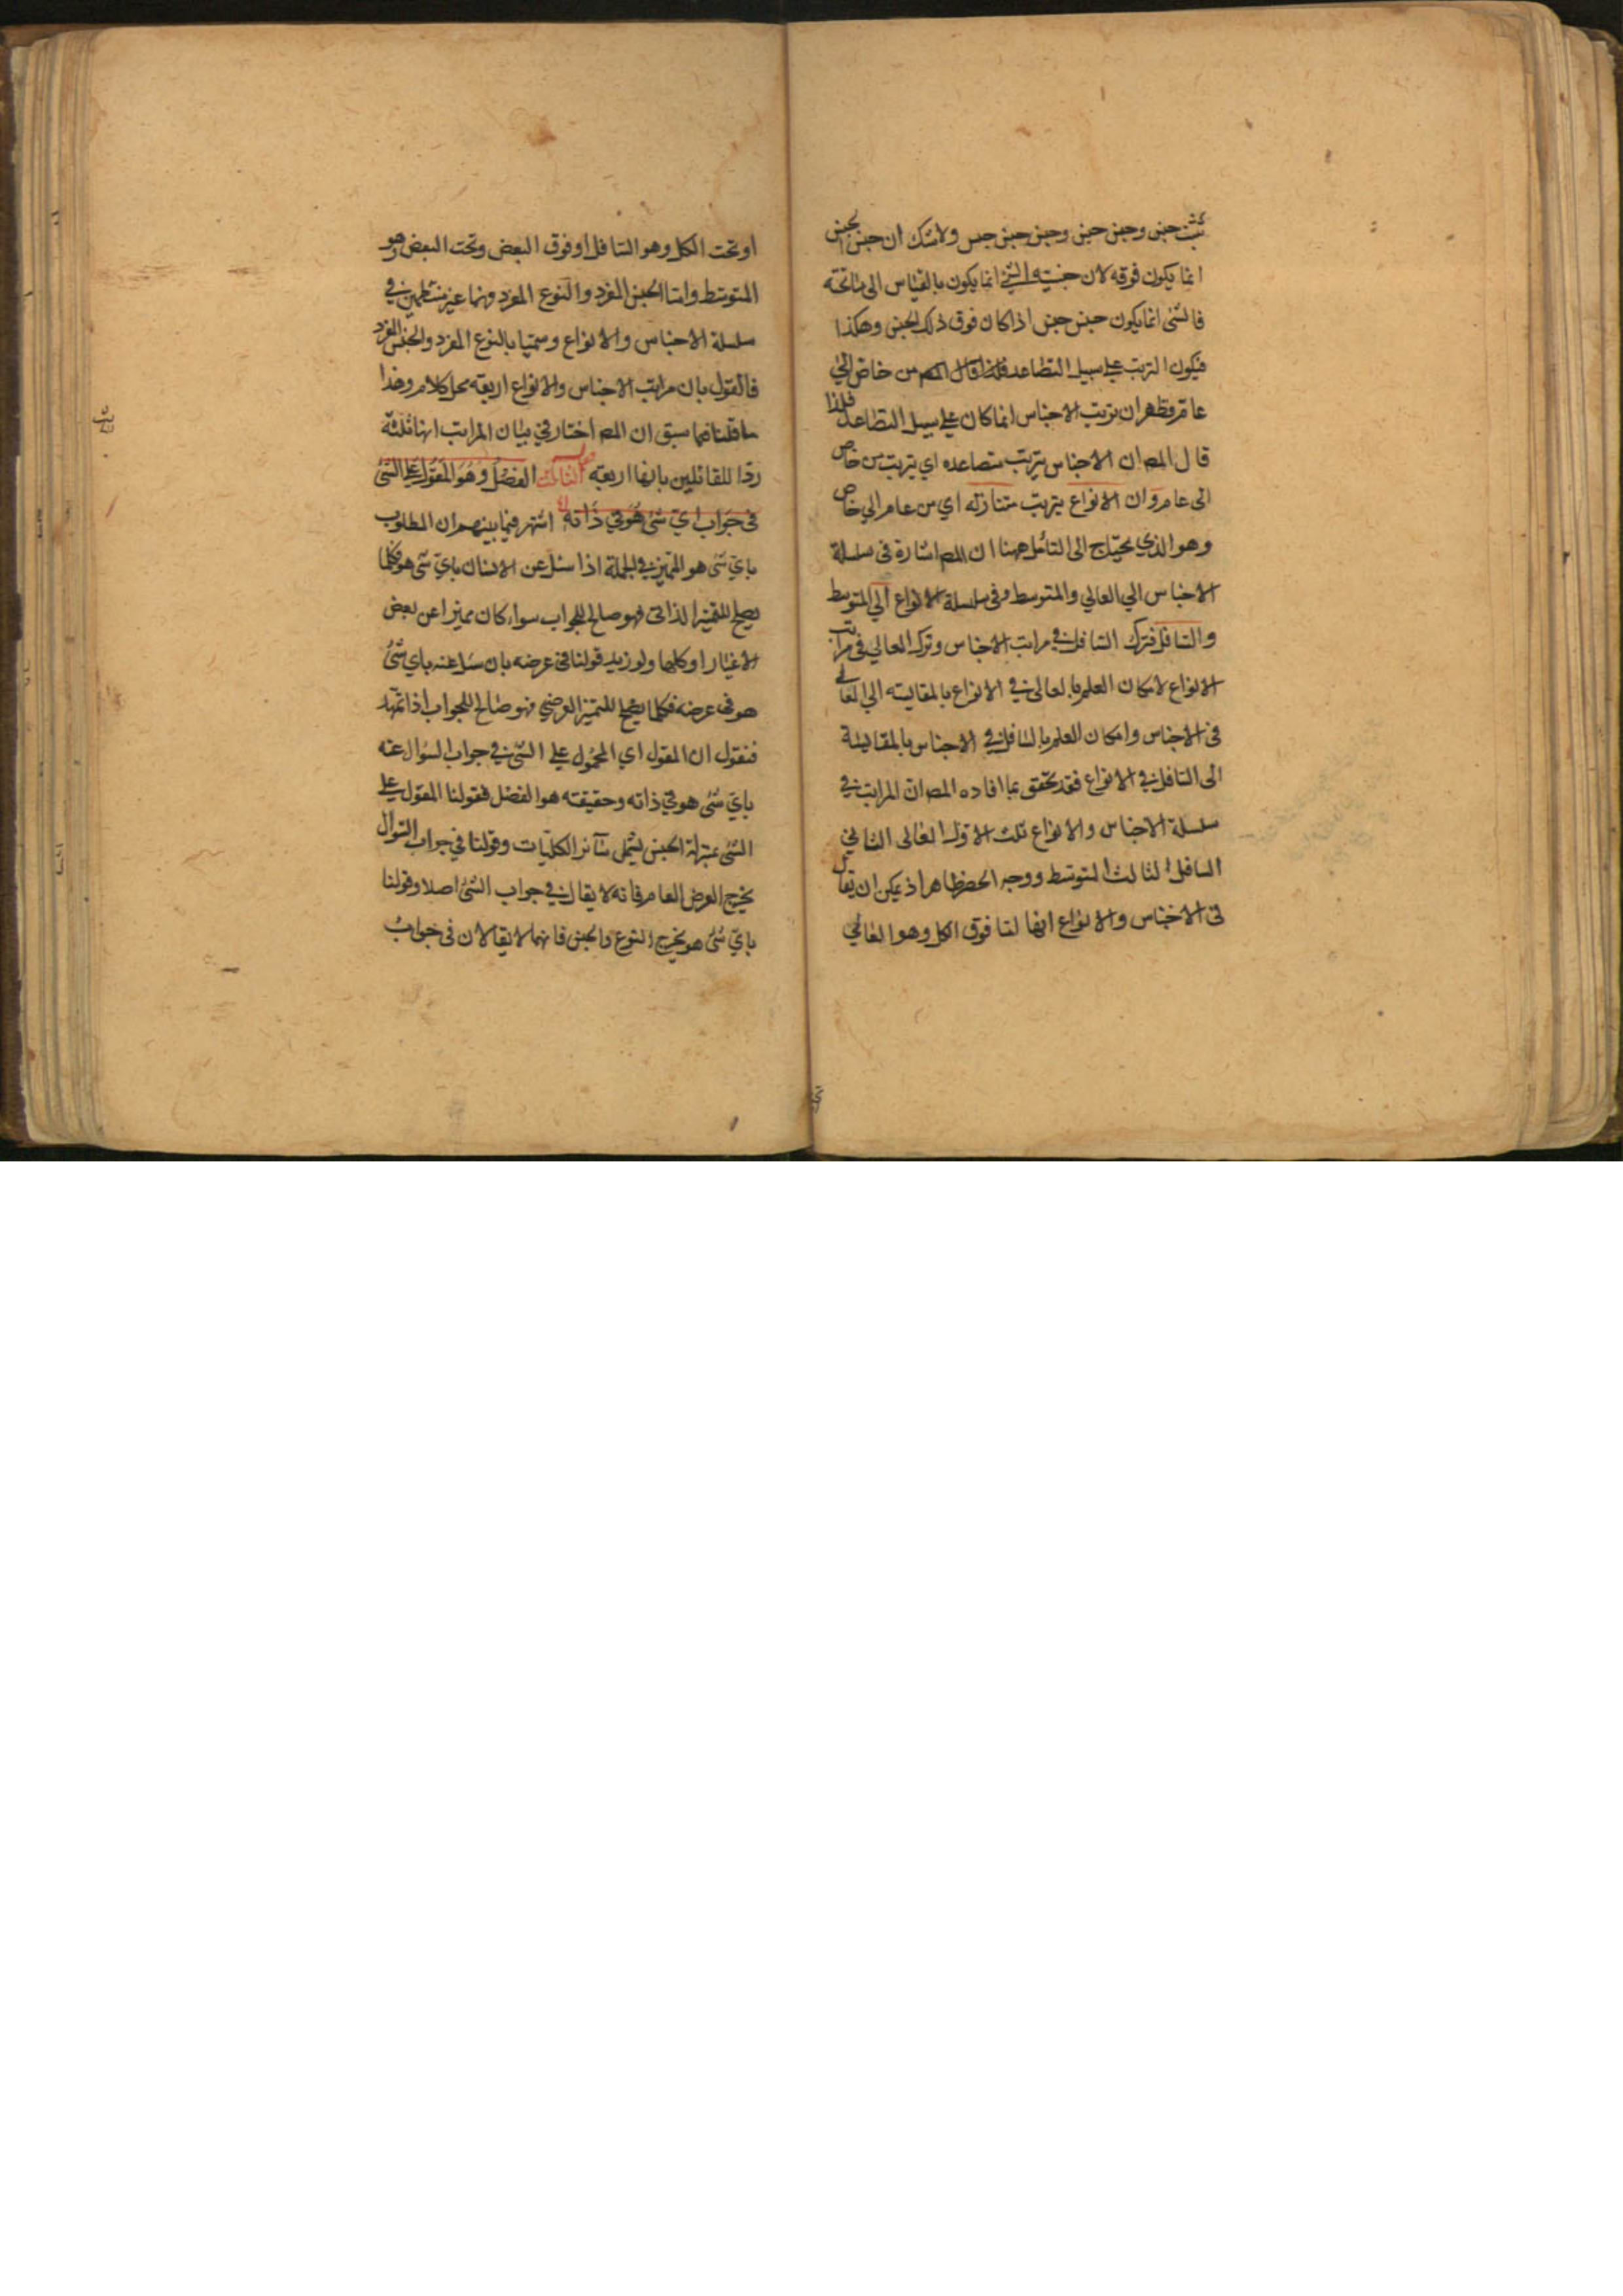 يثبت جنس وجنس جنس وجنس جنس جنس ولا شك ان جنس الجنس
انما يكون فوقه لان جنسية الشئ انما يكون بالقياس الى ما تحته
فالشئ انما يكون جنس جنس اذا كان فوق ذلك الجنس وهكذا
فيكون الترتب على سبيل التصاعد من خاص الى
عام فظهر ان ترتب الاجناس انما كان على سبيل التصاعد فلذا
قال المص ان الاجناس يترتب متصاعده اي يترتب من خاص
الى عام وان الانواع يترتب متنازله اي من عام الي خاص
وهو الذي يحتاج الى التأمل ههنا ان المص اشارة فى سلسلة
الاجناس الي العالي والمتوسط وفى سلسلة الانواع الي المتوسط
والسافل فترك السافل في مراتب الاجناس وترك العالي فى مراتب
الانواع لامكان العلم بالعالى في الانواع بالمقايسه الي العالي
فى الاجناس وامكان العلم بالسافل في الاجناس بالمقايسة
الى السافل في الانواع فقد تحقق بما افاده المص ان المراتب في
سلسلة الاجناس والانواع ثلث الاول العالى الثاني
السافل الثالث المتوسط ووجه الحصر ظاهر اذ يمكن ان يقال
فى الاجناس والانواع انها اما فوق الكل وهو العالي
او تحت الكل وهو السافل او فوق البعض وتحت البعض وهو
المتوسط واما الجنس المفرد والنوع المفرد فهما غير منتظمين في
سلسلة الاجناس والانواع وسميا بالنوع المفرد والجنس المفرد
فالقول بان مراتب الاجناس والانواع اربعة محل كلام وهذا
ما قلنا فيما سبق ان المص اختار في بيان المراتب انها ثلثة
ردا للقائلين بانها اربعة الثالث الفصل وهو المقول على الشئ
فى جواب اي شئ هو في ذاته اشتهر فيما بينهم ان المطلوب
باي شئ هو المميز في الجملة اذا سئل عن الانسان باي شئ هو فكلما
يصلح للتميز الذاتى فهو صالح للجواب سواء كان مميزا عن بعض
الاغيار او كلها ولو زيد قولنا فى عرضه بان سئل عنه باي شئ
هو فى عرضه فكلما يصلح للتميز العرضي فهو صالح للجواب اذا تمهد
فنقول ان المقول اي المحمول على الشئ في جواب السوال عنه
باي شئ هو في ذاته وحقيقته هو الفصل فقولنا المقول على
الشئ بمنزلة الجنس يشمل سائر الكليات وقولنا في جواب السوال
يخرج العرض العام فانه لا يقال في جواب الشئ اصلا وقولنا
باي شئ هو يخرج النوع والجنس فانهما لا يقالان فى جواب